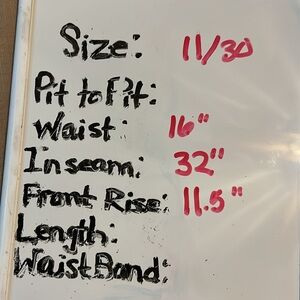 Size: 11/30
Pit to Pit:
Waist: 16"
Inseam: 32"
Front Rise: 11.5"
Length:
Waist Band: